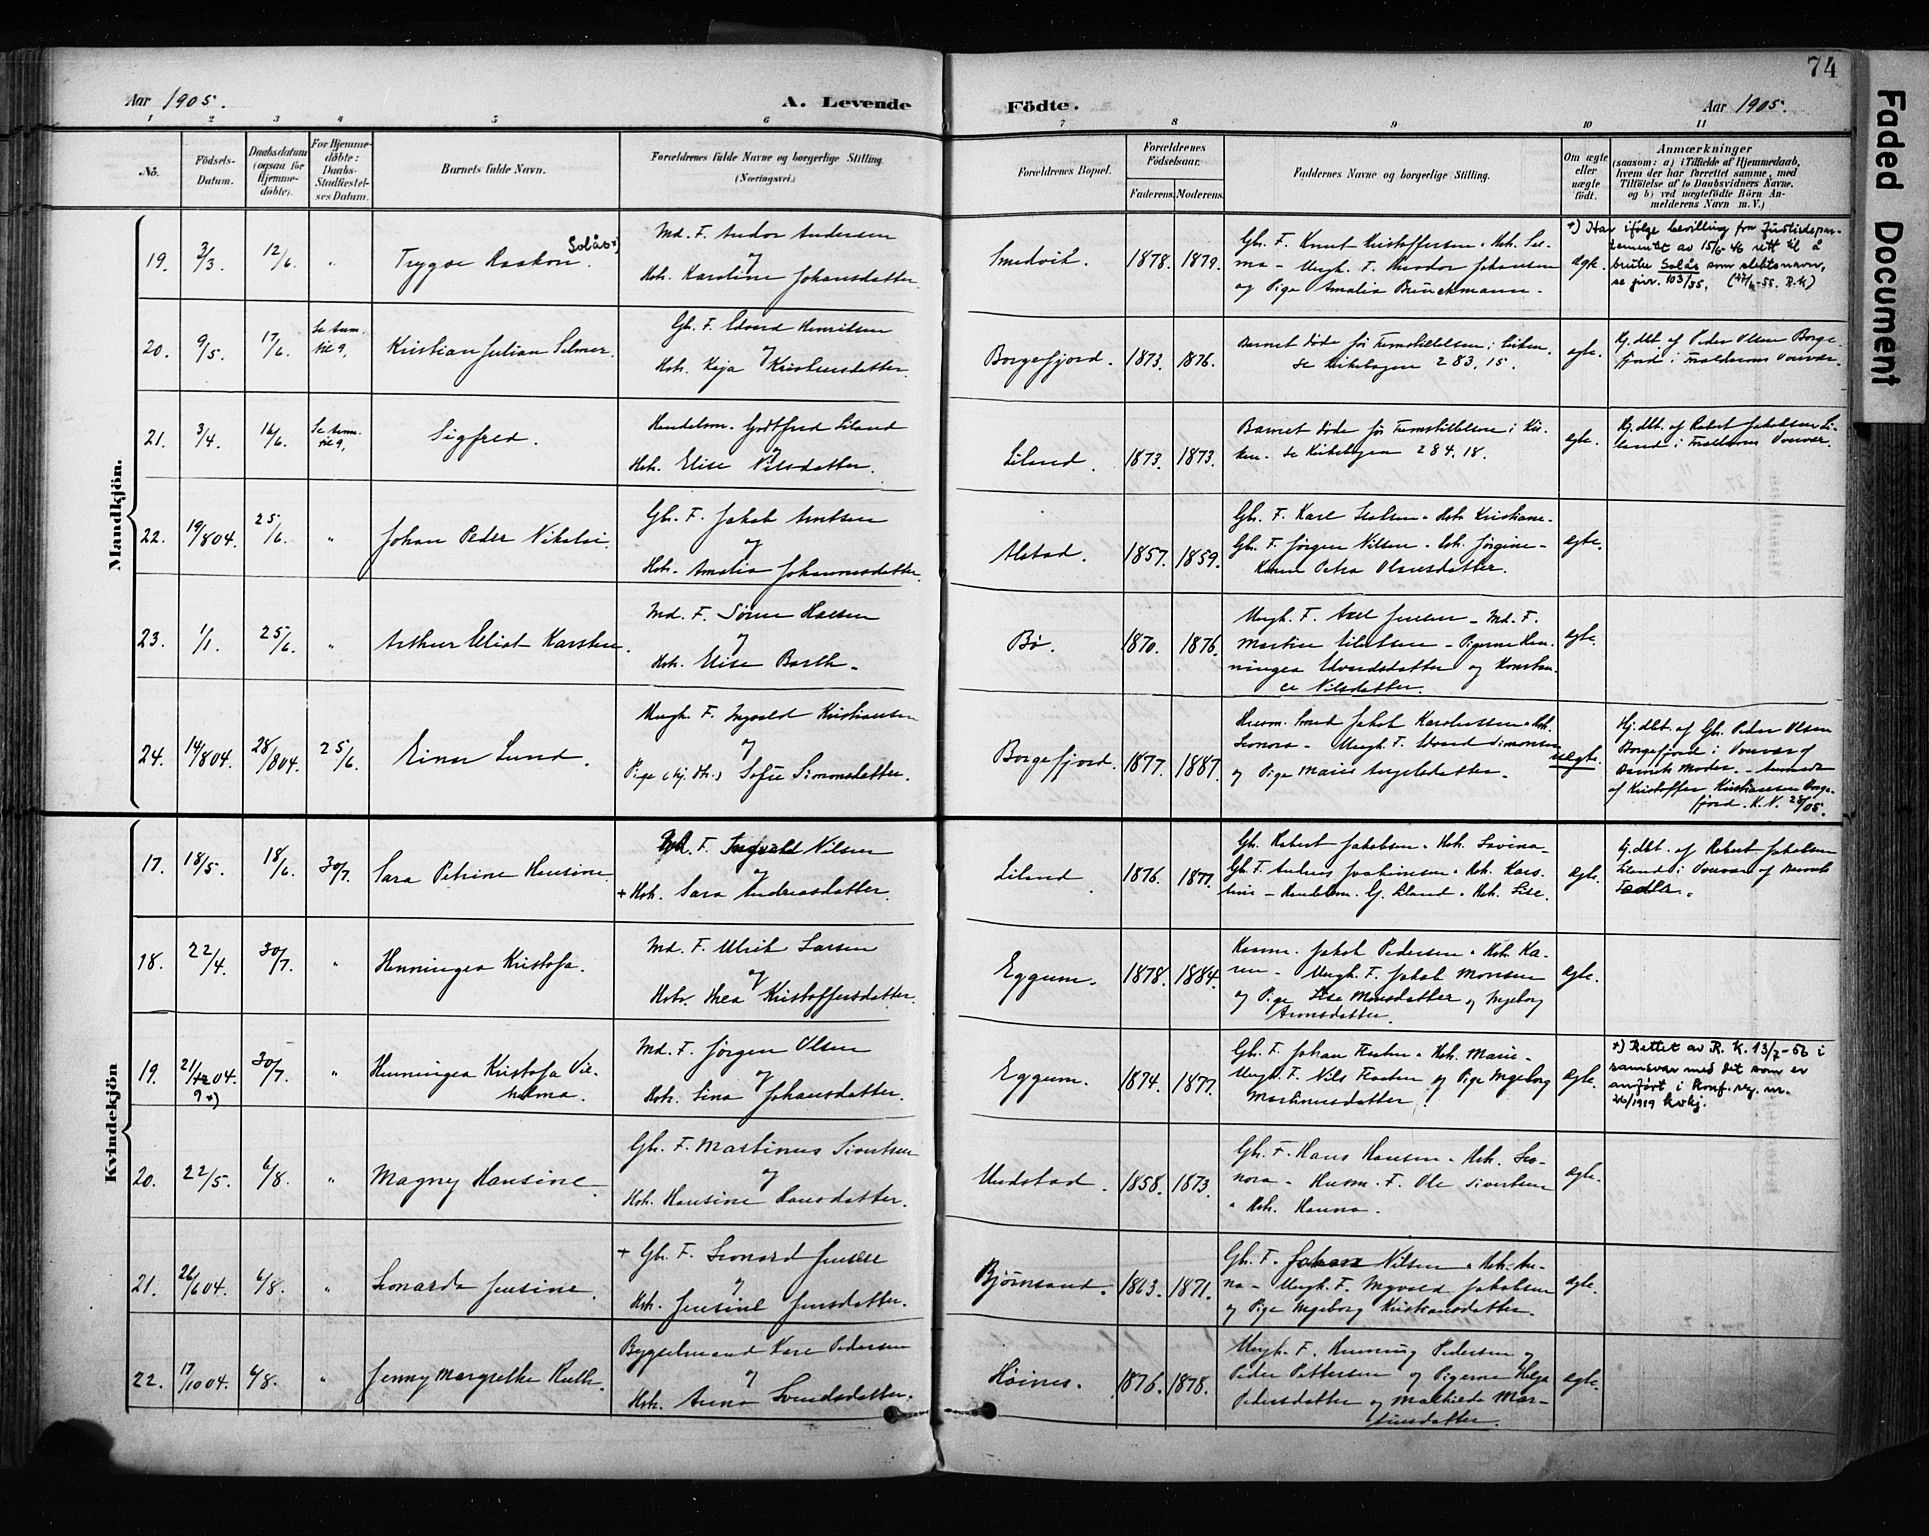 74
Faded Document
Aar 1905.
A. Levende
Födte.
Aar 1905.
1 2 3 4 5 6 7 8 9 10 11
No.
Födsels-
Datum.
Daabsdatum
(ogsaa for
Hjemme-
döbte).
For Hjemme-
döbte:
Daabs-
Stadfæstel-
ses Datum.
Barnets fulde Navn.
Forældrenes fulde Navne og borgerlige Stilling.
(Næringsvei.)
Forældrenes Bopæl.
Forældrenes
Födselsaar.
Faderens. Moderens.
Faddernes Navne og borgerlige Stilling.
Om ægte
eller
uægte
födt.
Anmærkninger
(saasom: a) i Tilfælde af Hjemmedaab,
hvem der har forrettet samme, med
Tilföielse af to Daabsvidners Navne.
og b) ved uægtefödte Börn An-
melderens Navn m. V.)
Mandkjön.
19. 3/3. 12/6. " Trygve Haakon. Solås *)
Md. F. Andor Andersen
og
Hstr. Karoline Johansdatter.
Smedvik. 1878. 1879.
Gbr. F. Knut Kristoffersen & Hstr. Se-
ma - Ungk. F. Teodor Johansen
og Pige Amalia Brinckmann.
ægte.
*) Har ifølge bevilling fra Justisdepar-
tementet av 15/5 46 rett til å
bruke Solås som slektsnavn,
se jnr. 103/55.
20. 9/5. 17/6. Se Anm.
til 9. Kristian Julian Selmer.
Gbr. F. Edvard Henriksen
og
Hstr. Kaja Kristensdatter.
Borgefjord. 1873. 1876.
Barnet døde før Fremstillelsen i Kirken.
Se Kirkebogen 283. 15.
ægte.
Hj.dbt. af Peder Olsen Borge-
fjord i Forældrenes Nærvær.
21. 3/4. 16/6. Se Anm.
til 9. Sigfred.
Handelsm. Godtfred Liland
og
Hstr. Elise Nilsdatter.
Liland. 1873. 1873.
Barnet døde før Fremstillelsen i Kir-
ken. Se Kirkebogen 284. 18.
ægte.
Hj.dbt. af Robert Jakobsen Li-
land i Forældrenes Nærvær.
22. 19/8 04. 25/6. " Johan Peder Nikolai.
Gbr. F. Jakob Arntsen
og
Hstr. Amalia Johannesdatter.
Alstad. 1857. 1859.
Gbr. F. Karl Olsen & Hstr. Kristiane -
Gbr. F. Jørgen Nilsen & Hstr. Jørgine -
Petra Olausdatter.
ægte.
23. 1/1. 25/6. " Arthur Eliot Karsten.
Md. F. Søren Hansen
og
Hstr. Elise Barth.
Bø. 1870. 1876.
Ungk. F. Axel Jensen - Md. F.
Martin - Pigerne Hen-
ningea Edvardsdatter og Konstan-
ce Nilsdatter.
ægte.
24. 14/8 04. 28/8 04. 25/6. Einar Lund.
Ungk. F. Ingvald Kristiansen
og
Pige (hj. dtr.) Sofie Simonsdatter.
Borgefjord. 1877. 1887.
Husm. Smed Jakob & Hstr.
Leonora - Ungk. F. Edvard Simonsen
og Pige Marie Engelsdatter.
uægte.
Hj.dbt. af Gbr. Peder Olsen
Borgefjord i Nærvær af
Barnets Moder. - Anmeldt
af Kristoffer Kristiansen Borge-
fjord. K.N. 28/05.
Kvindekjön
17. 18/5. 18/6. 30/7. Sara Petrine Hansine.
Gbr. F. Ingvald Nilsen
og
+ Hstr. Sara Andreasdatter.
Liland. 1876. 1877.
Gbr. Robert Jakobsen & Hstr. Lovina -
Gbr. F. Anders Joakimsen & Hstr. Kars-
tine - Handelsm. G. Liland & Hstr. Lise.
ægte.
Hj.dbt. af Robert Jakobsen
Liland i Nærvær af Barnets
Fader.
18. 22/4. 30/7. " Henningea Kristofa.
Md. F. Ulrik Larsen
og
Hstr. Thea Kristoffersdatter.
Eggum. 1878. 1884.
Jakob Pedersen & Hstr. Ka-
ren - Ungk. F. Jakob Monsen
og Pige Lise Monsdatter og Ingeborg
Aronsdatter.
ægte.
19. 21/12 04. 30/7. " Henningea Kristofa Vil-
9 *) helma.
Md. F. Jørgen Olsen
og
Hstr. Lina Johansdatter.
Eggum. 1874. 1877.
Gbr. F. Johan & Hstr. Marie -
Ungk. F. Nils og Pige Ingeborg
Martinusdatter.
ægte.
*) Rettet av R. K. 13/7-56 i
samsvar med det som er
anført i Konf.reg. nr.
26/1919 kvkj.
20. 22/5. 6/8. " Magny Hansine.
Gbr. F. Martinus Sivertsen
og
Hstr. Hansine Hansdatter.
Undstad. 1858. 1873.
Gbr. F. Hans Hansen & Hstr. Leo-
nora - Husm. F. Ole Sivertsen
& Hstr. Hanna.
ægte.
21. 26/6 04. 6/8. " Leonarda Jensine.
+ Gbr. F. Leonard Jensen
og
Hstr. Jensine Jensdatter.
Bjørnsand. 1863. 1871.
Gbr. F. Johan Nilsen & Hstr. An-
na - Ungk. F. Ingvald Jakobsen
og Pige Ingeborg Kristiansdatter.
ægte.
22. 17/10 04. 6/8. " Jenny Margrethe Ruth.
Bygselmand Kare Pedersen
og
Hstr. Anna Svendsdatter.
Høines. 1876. 1878.
Ungk. F. Henning Pedersen og
Peder Pettersen og Pigerne Helga
Pedersdatter og Mathilde Mar-
tinsdatter.
ægte.